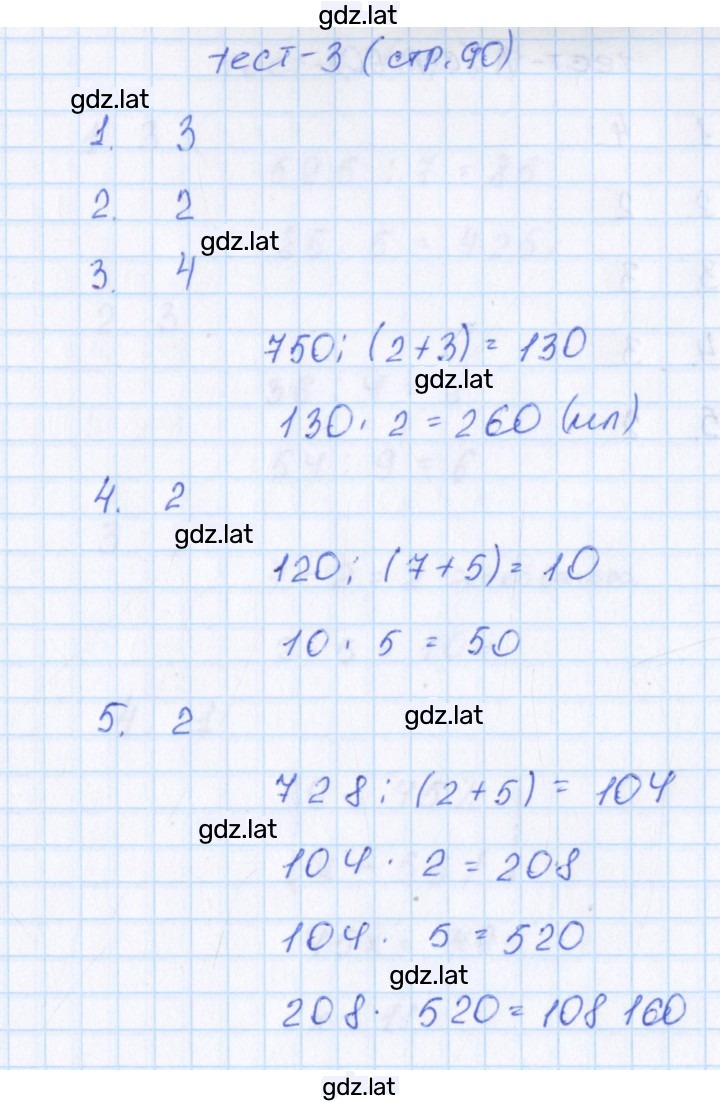 gdz.lat
тест-3 (стр.90)
gdz.lat
1. 3
2. 2
gdz.lat
3. 4
750: (2+3) = 130
gdz.lat
130 · 2 = 260 (мл)
4. 2
gdz.lat
120: (7+5) = 10
10 · 5 = 50
5. 2
gdz.lat
728: (2+5) = 104
gdz.lat
104 · 2 = 208
104 · 5 = 520
gdz.lat
208 · 520 = 108 160
gdz.lat